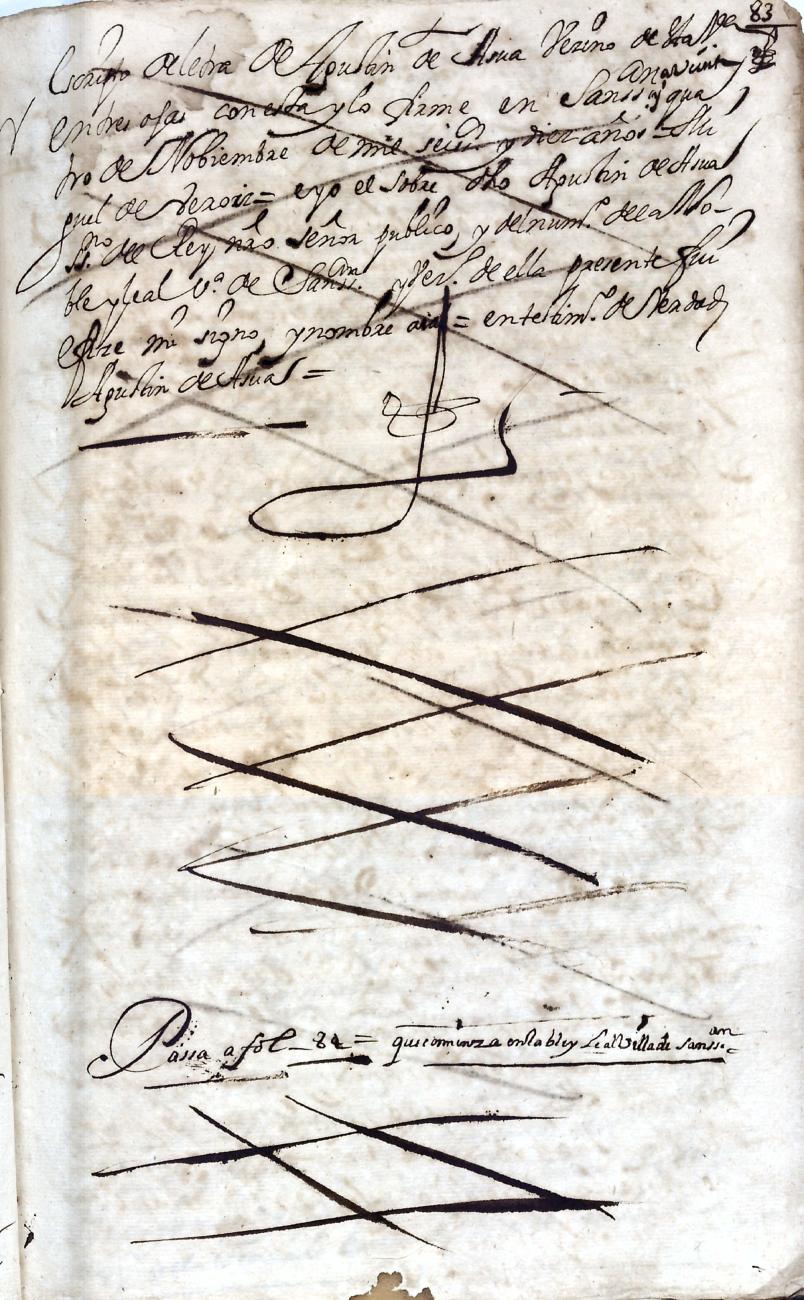 83
escripto de letra de Agustin de Asua Vezino de sta Va
entresojas con esta y lo firme en Sanss.an a veinte y qua
tro de Nobiembre de mil seis.os y diez años = Mi
guel de Veroiz = e yo el sobre dho Agustin de Asua
ss.no del Rey nro señor publico, y del num.o de la No-
ble y leal V.a de Sanss.an y ver.l de ella presente fui
e fize mi signo, y nombre a tal = en testim.o de Verdad
Agustin de Asua =
Passa a fol_84 = que comienza en la No ble y Leal Villa de Sanss.an